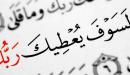 رَبُّكَ وَمَا قَلَى
لَسَوْفَ يُعْطِيكَ رَبُّكَ